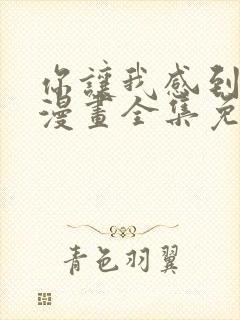 你讓我感到
漫畫全集免
青色羽翼